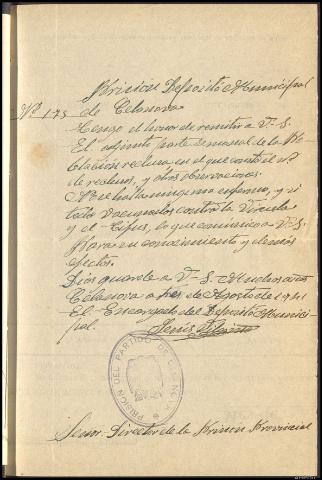 Prision Deposito Municipal
Nº 175 de Celanova
Tengo el honor de remitir a V-S.
El adjunto parte semanal de la Po
blacion reclusa en el que consta el nº
de reclusos, y otras observaciones.
No se halla ninguno enfermo, y si
todos vacunados contra la Viruela
y el Tifus, lo que comunico a V-S.
Para su conocimiento y demás
efectos.
Dios guarde a V-S. Muchos años
Celanova a tres de Agosto de 1941
El Encargado del Deposito Munici
pal.
PRISION DEL PARTIDO DE CELANOVA
Señor Director de la Prision Provincial